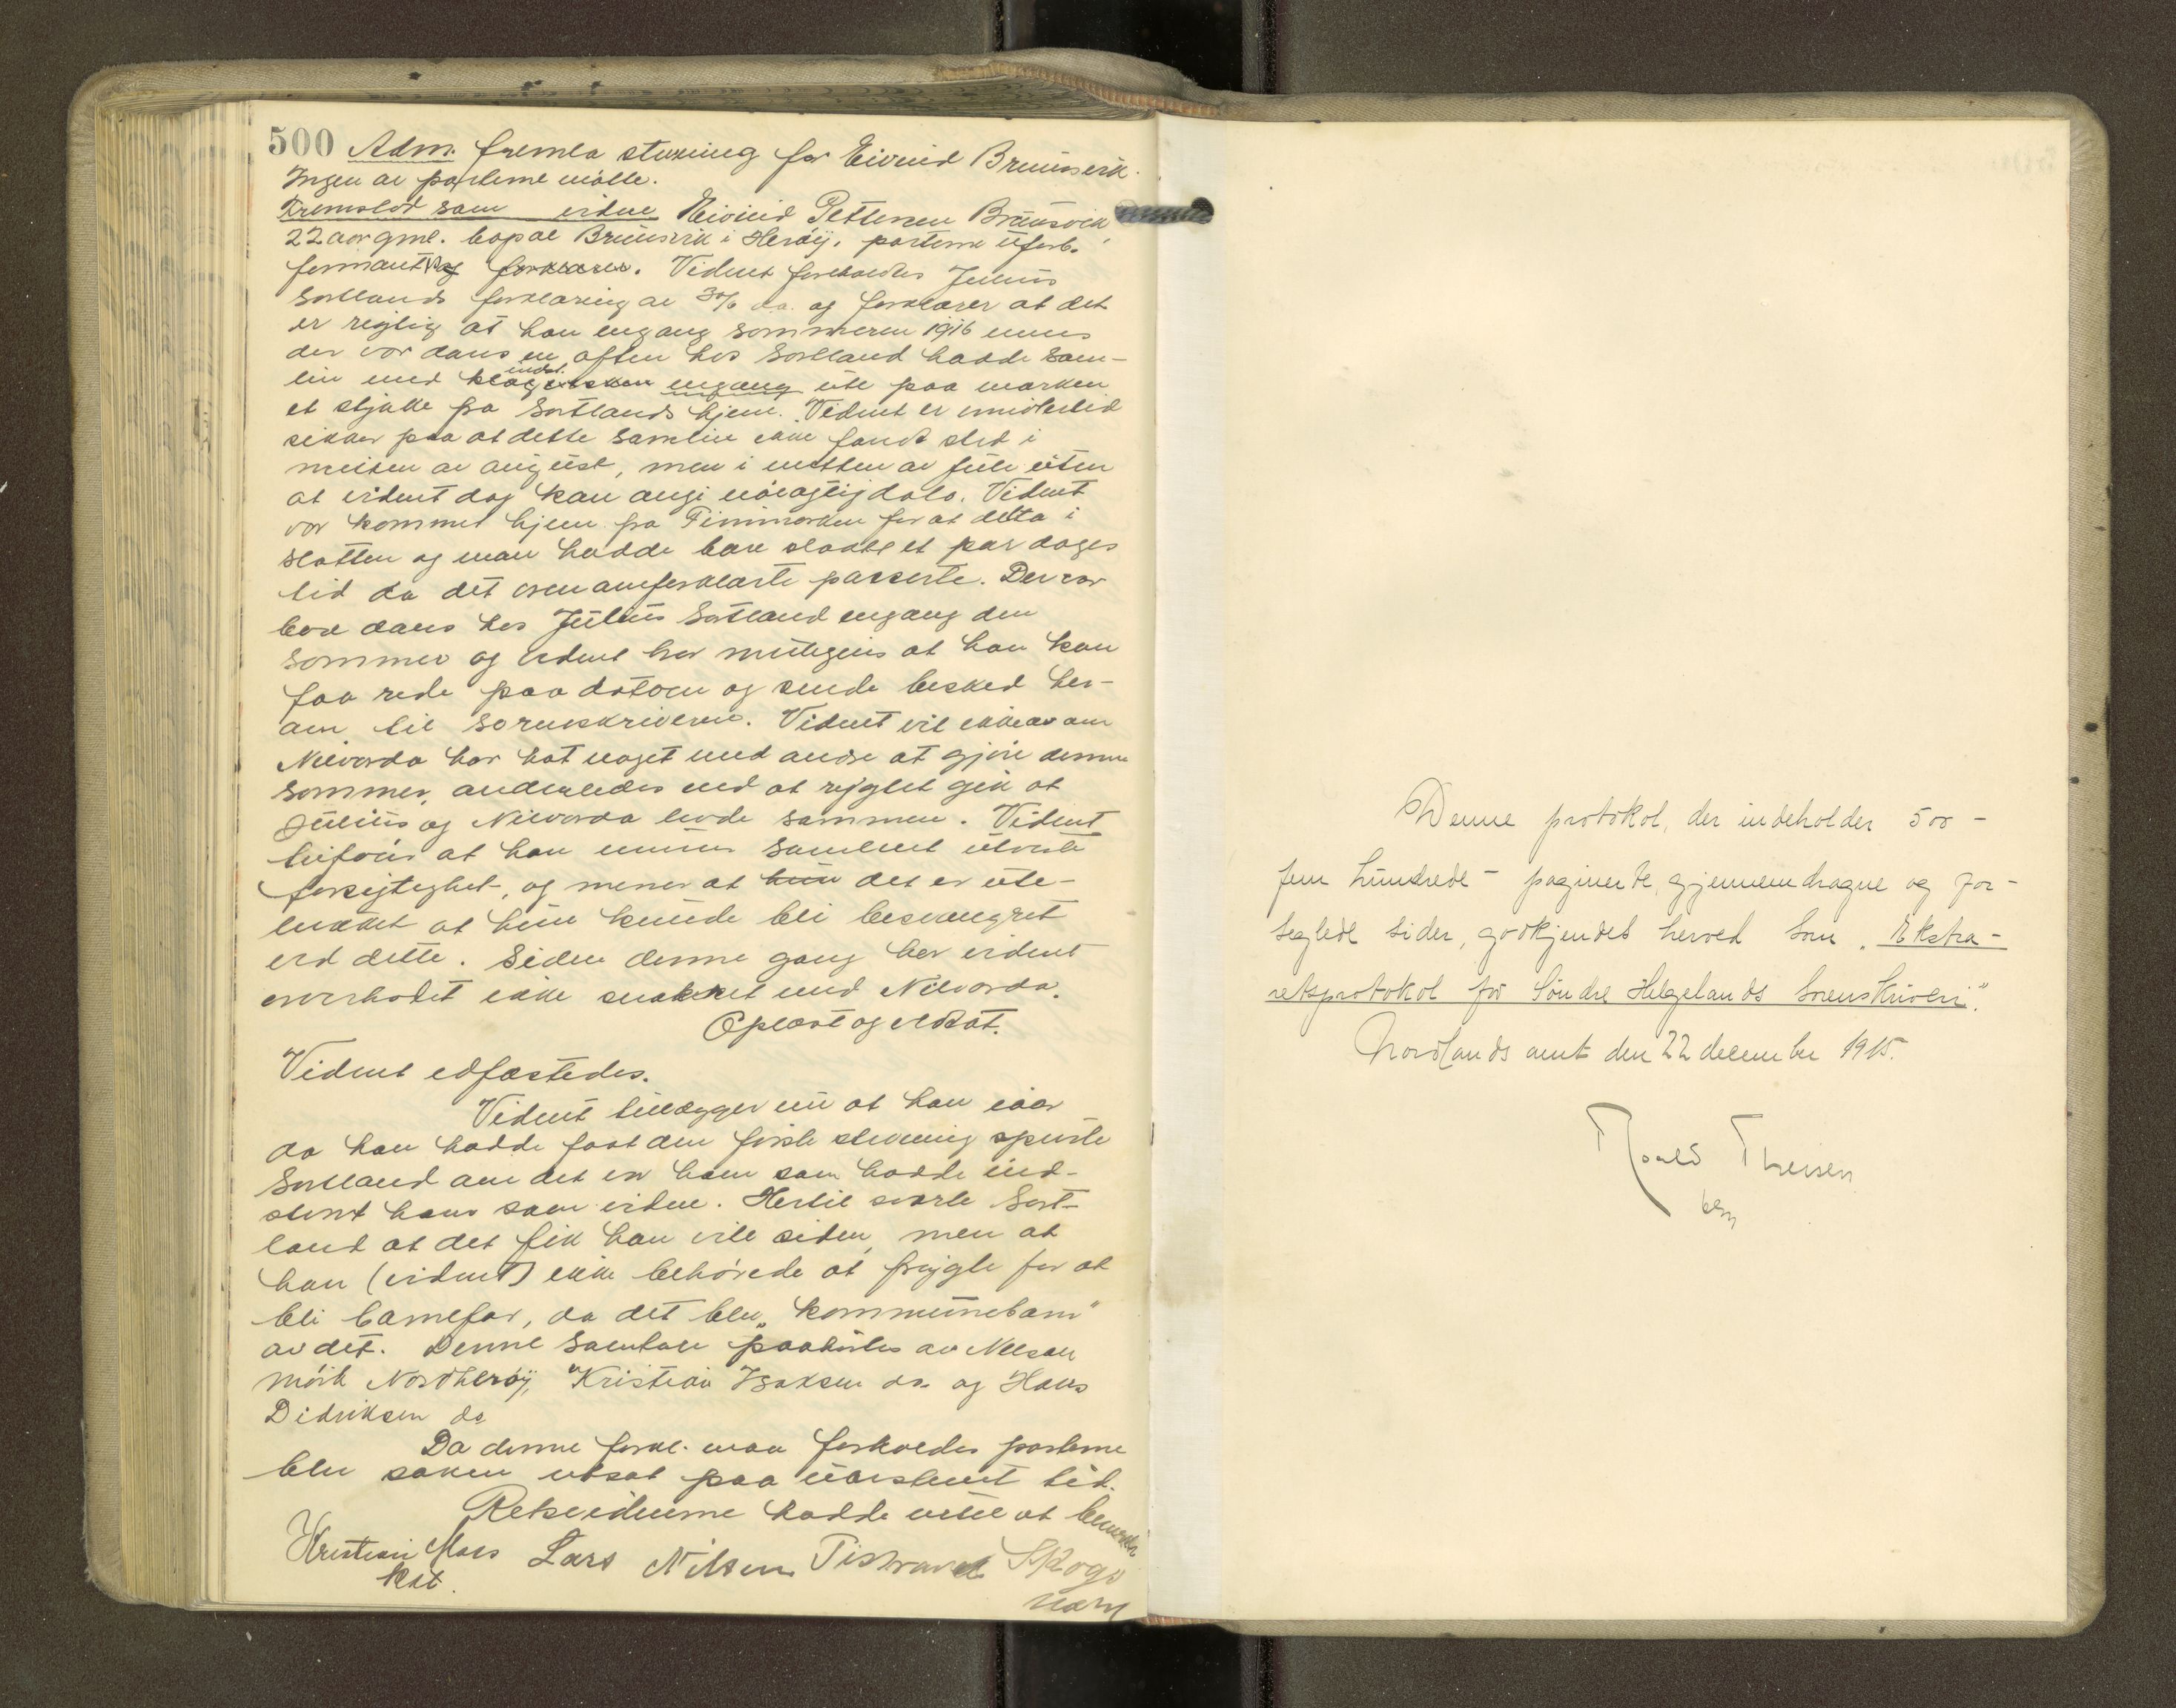 500 Adm. fremla stevning for Eivind Brunsvik.
Ingen av parterne møtte.
Fremstod som vidne Eivind Pettersen Brunsvik,
22 aar gml. bopæl Brunsvik i Herøy, parterne uforb.
formant og forklarer. Vidnet foreholdtes Julius
Sortlands forklaring av 30/6 da. og forklarer at det
er rigtig at han engang sommeren 1916 mens
der var dans en aften hos Sortland hadde sam-
leie med klagersken indst. engang ute paa marken
et stykke fra Sortlands hjem. Vidnet er imidlertid
sikker paa at dette samleie ikke fandt sted i
midten av august, men i midten av juli uten
at vidnet dog kan angi nøiagtig dato. Vidnet
var kommet hjem fra Finmarken for at delta i
slotten og man hadde bare slaatt et par dages
tid da det ovenomforklarte passerte. Der var
bare dans hos Julius Sortland engang den
sommer og vidnet har muligens at han kan
faa rede paa datoen og sende besked her-
om til sorenskriveren. Vidnet vil ikke om
Nilvarda har hat noget med andre at gjøre denne
sommer, anderledes end at rygtet gik at
Julius og Nilvarda levde sammen. Vidnet
tilføier at han under samleiet utviste
forsigtighet, og mener at hun det er ute-
lukket at hun kunde bli besvangret
ved dette. Siden denne gang har vidnet
overhodet ikke snakket med Nilvarda.
Oplæst og vedtat.
Vidnet edfæstedes.
Vidnet tillægger nu at han iaar
da han hadde faat den første stevning spurte
Sortland om det var ham som hadde ind-
stevnt ham som vidne. Hertil svarte Sort-
land at det fik han vite siden, men at
han (vidnet) ikke behøvede at frygte for at
bli barnefar, da det blev "kommunebarn"
av det. Denne samtale paahørtes av Nelsen
Mørk Nordherøy, Kristian Isaksen do. og Hans
Didriksen do
Da denne forkl. maa forholdes parterne
blev saken utsat paa ubestemt tid.
Retsvidnerne hadde intet at bemerke
Kristian Moes Lars Nilsen Tistrand Skogs
kst.
Denne protokol, der indeholder 500 -
fem hundrede - paginerte, gjennemdragne og for-
seglede sider, godkjendes herved som "Ekstra-
retsprotokol for Søndre Helgelands Sorenskriveri".
Nordlands amt den 22 december 1915.
Roald Theisen